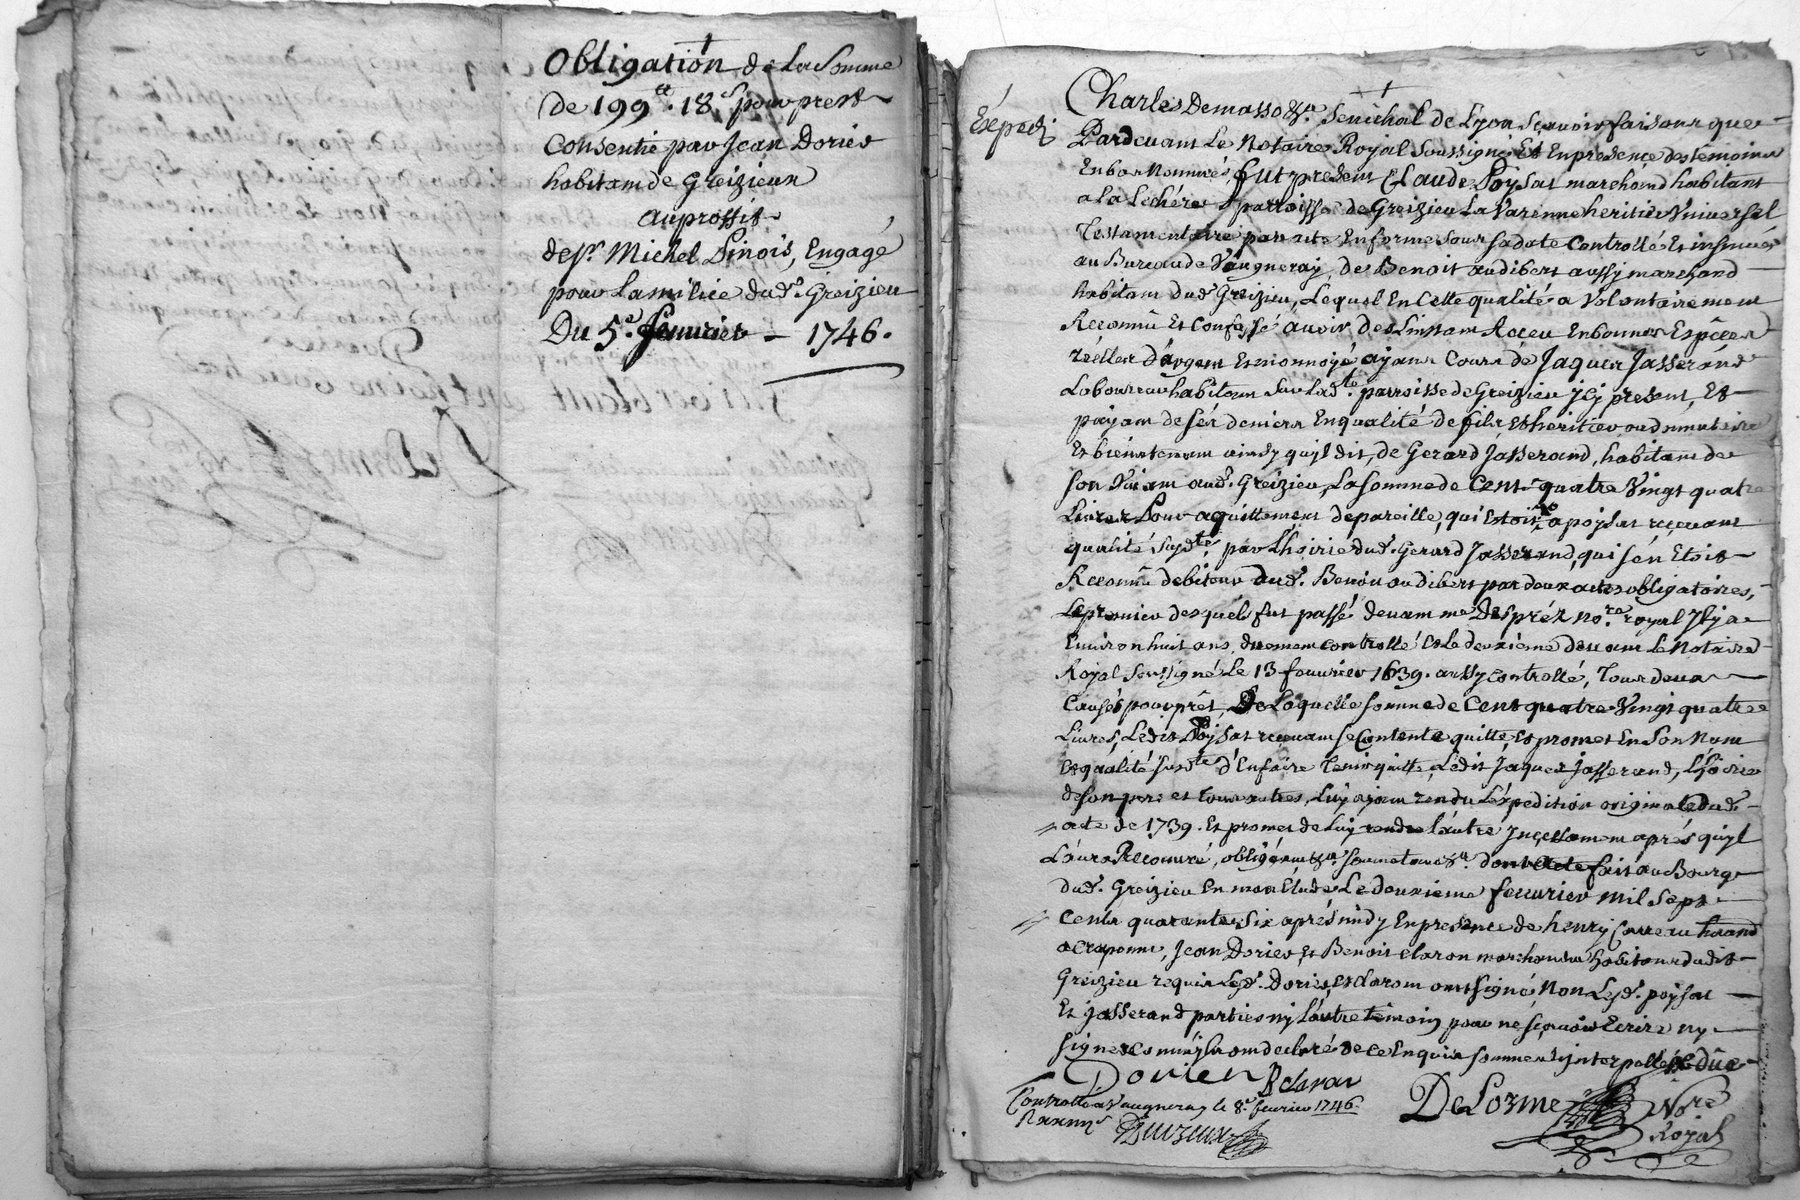 Obligation de la Somme
de 199ᵗᵗ. 18ˢ pour prest
Consentie par Jean Dorier
habitant de Greizieux
au proffit
de sʳ. Michel Pinois, Engagé
pour la milice dudᵗ. Greizieu
Du 5ᵉ. feuvrier – 1746.
Expedié
Charles Demasso &ᵃ. Senéchal de Lyon sçavoir faisons que
Pardevant Le Notaire Royal soussigné Et En presence des témoins
En bas Nommés, fut present Claude Poysat marchand habitant
a La Lechere parroisse de Greizieu La Varenne heritier Universel
Testamentaire par acte En forme sous sa date Controllé Et insinué
au Bureau de Vaugneray, de Benoit audibert aussy marchand
habitant dudᵗ Greizieu, Lequel En Cette qualité a Volontairement
Reconnû Et Confessé avoir des L'instant Receu En bonnes Espèces
réelles d'argent Et monnoyé ayant Cours de Jaques Jasserand
Laboureur habitant sur Ladᵗᵉ. parroisse de Greizieu jcy present, Et
payant de sés deniers En qualité de fils Et heritier ou donnataire
Et biens tenant ainsy qu'jl dit, de Gerard Jasserand, habitant de
son Vivant audᵗ. Greizieu, La somme de Cent quatre Vingt quatre
Livres Pour aquittement de pareille, qui Estoit a poysat recevant
qualité susdᵗᵉ. par L'hoirie dudᵗ. Gerard Jasserand, qui s'en Etoit
Reconnû debiteur dudᵗ. Benoit audibert par deux actes obligatoires,
Le premier desquels fut passé devant mᵉ Despréz noʳᵉ royal Jl y a
Environ huit ans, duement controllé Et Le deuxième devant Le Notaire
Royal soussigné Le 13 feuvrier 1639. aussy controllé, Tous deux
Causés pour prêt, De Laquelle somme de Cent quatre Vingt quatre
Livres, Ledit Poysat recevant se Contente quitte, Et promet En son Nom
Et qualité susdᵗᵉ d'En faire Tenir quitte, Ledit Jaques Jasserand, L'hoirie
de son pere et tous autres, Luy ajant rendu L'éxpedition originale dudᵗ
acte de 1739. Et promet de Luy rendre L'autre Jncessament aprés qu'jl
L'aura Recouvré, obligéant &ᵃ. soumetant &ᵃ. dont acte fait au Bourg
dudᵗ. Greizieu En mon Etude Le deuxieme feuvrier mil sept
Cents quarante Six aprés midy En presence de henry Carreau
a Craponne, Jean Dorier, Et Benoit Claron marchands habitants dudit
Greizieu requis Lesdᵗ. Dorier, Et Claron ont signé, Non Lesdᵗ. poysat
Et Jasserand parties ny L'autre témoin pour ne sçavoir Ecrire ny
signer Comme jls ont declaré de ce Enquis sommés Et jnterpellés
Dorier B Claron
Controllé a Vaugneray le 8ᵉ. fevrier 1746.
DeLorme Noʳᵉ
Royal